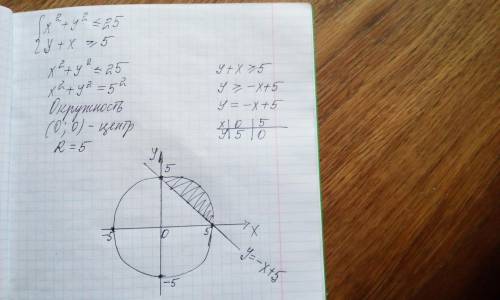 {x² + y² ≤ 25
y + x ≥ 5
x² + y² ≤ 25
x² + y² = 5²
Окружность
(0; 0) - центр
R = 5
y + x ≥ 5
y ≥ -x + 5
y = -x + 5
x | 0 | 5
y | 5 | 0
y
5
-5
0
5
x
-5
y = -x + 5